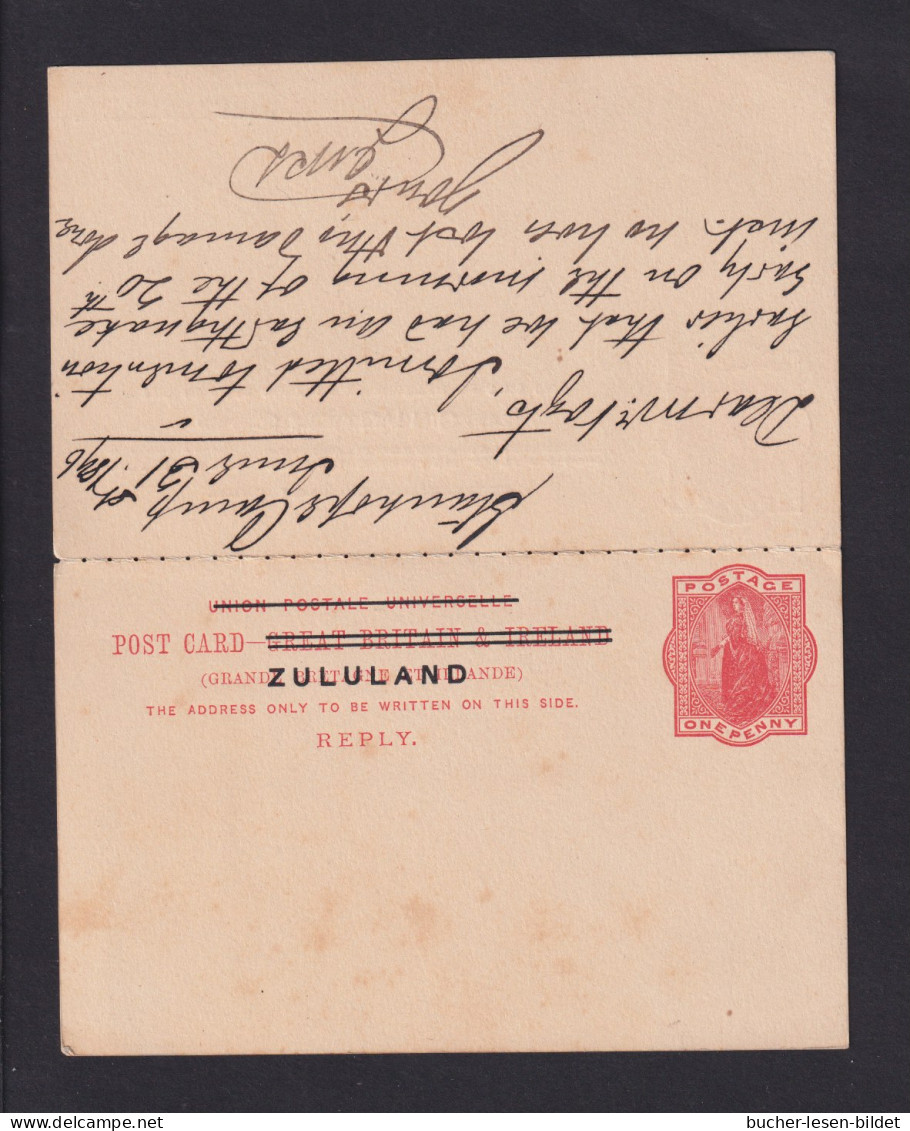 Camp
June 21st/96
Dear Mr. Vogts, I omitted to mention
Earlier that we had an Earthquake
Early on the morning of the 20th
inst. no lives lost & no Damage done
Yours
UNION POSTALE UNIVERSELLE
POST CARD–GREAT BRITAIN & IRELAND
ZULULAND
(GRANDE BRETAGNE ET IRLANDE)
THE ADDRESS ONLY TO BE WRITTEN ON THIS SIDE.
REPLY.
POSTAGE
ONE PENNY
bucher-lesen-bildet